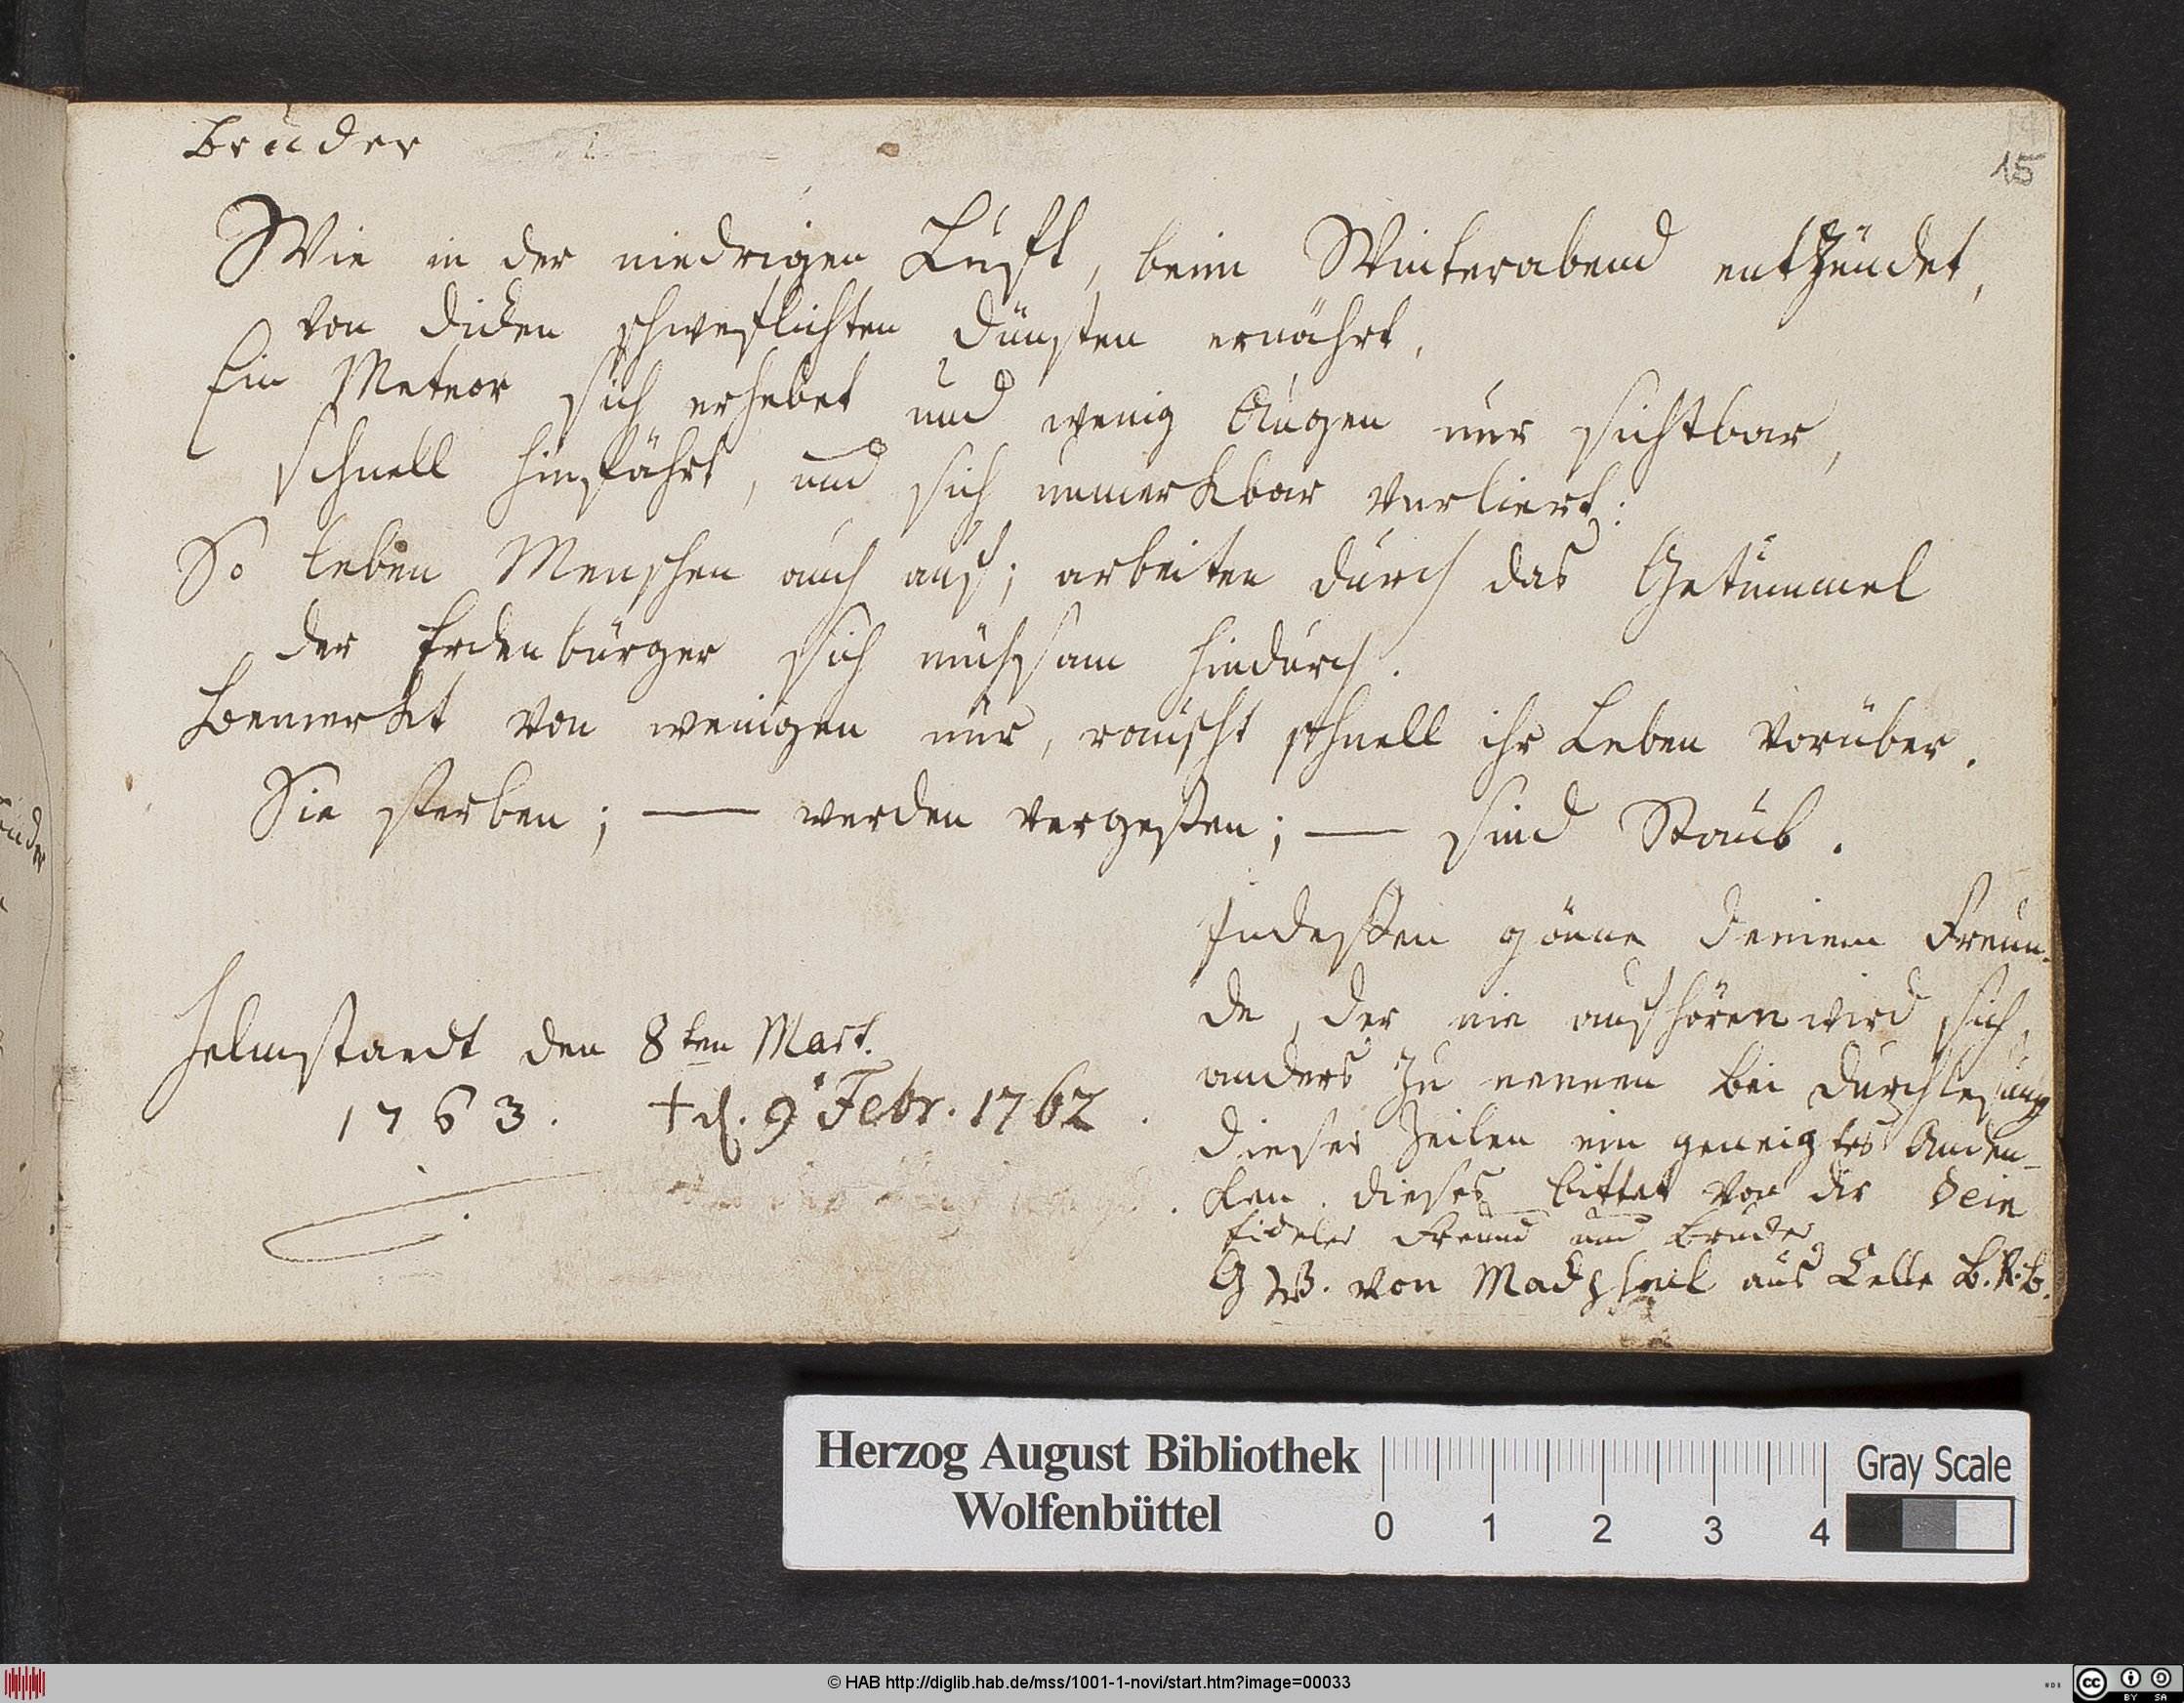 Bruder
15
Wie in der niedrigen Luft, beim Winterabend entzündet,
von dicken schweflichten Dünsten ernährt,
Ein Meteor sich erhebet und wenig Augen nur sichtbar,
schnell hinfährt, und sich unmerkbar verliert:
So leben Menschen auch auf; arbeiten durch das Getümmel
der Erdenbürger sich mühsam hindurch.
Bemerkt von wenigen nur, rauscht schnell ihr Leben vorüber.
Sie sterben; — werden vergeßen; — sind Staub.
Indeßen gönne deinem Freun-
de, der nie aufhören wird sich
anders zu nennen bei Durchlesung
dieser Zeilen ein geneigtes Anden-
ken. dieses bittet von dir dein
fideler Freund und Bruder
G W. von aus Celle
Helmstaedt den 8ten Mart.
1763. † d. 9 Febr. 1762
Herzog August Bibliothek
Wolfenbüttel
0 1 2 3 4
Gray Scale
© HAB http://diglib.hab.de/mss/1001-1-novi/start.htm?image=00033
cc BY SA